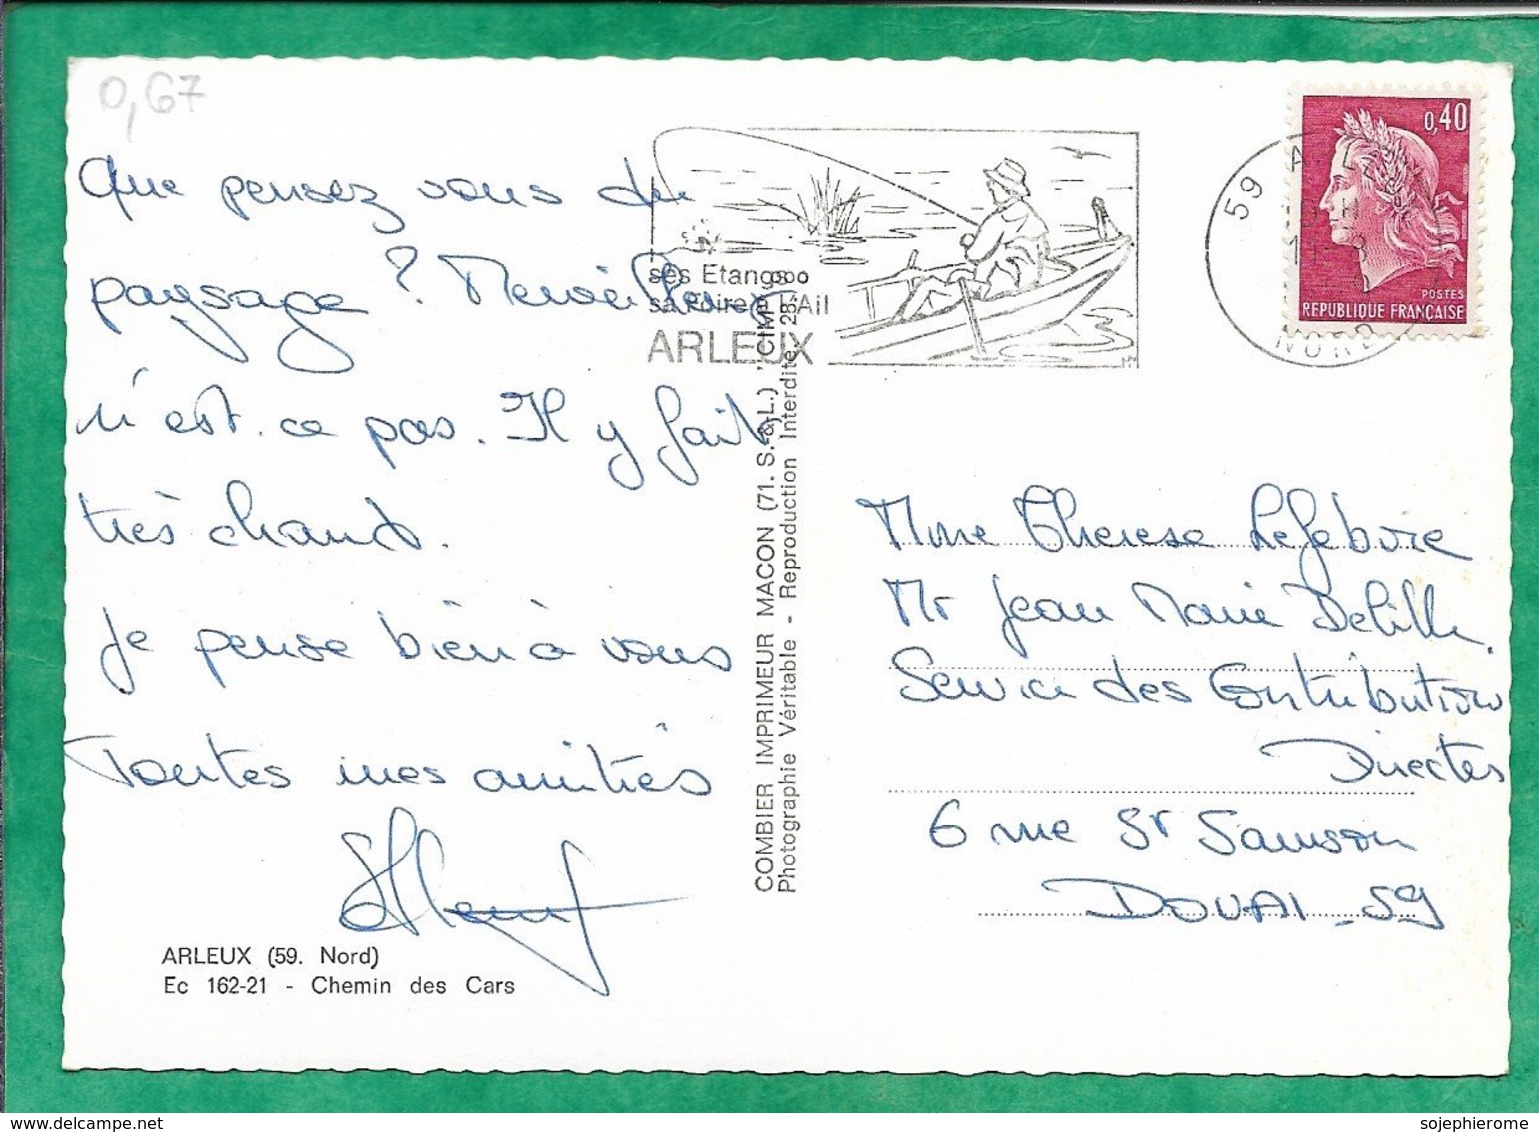 0,67
Que pensez vous du
paysage ? Merveilleux
n'est.ce pas. Il y fait
très chaud.
Je pense bien à vous
Toutes mes amitiés
ARLEUX (59. Nord)
Ec 162-21 - Chemin des Cars
COMBIER IMPRIMEUR MACON (71. S.-&-L.) "CIM"
Photographie Véritable - Reproduction Interdite
ses Etangs
sa Foire à l'Ail
ARLEUX
59 ARLEUX
NORD
0,40
POSTES
REPUBLIQUE FRANÇAISE
Mme Therese Lefebvre
Mr Jean Marie Delille
Service des Contributions
Directes
6 rue St Samson
DOUAI - 59
sojephierome